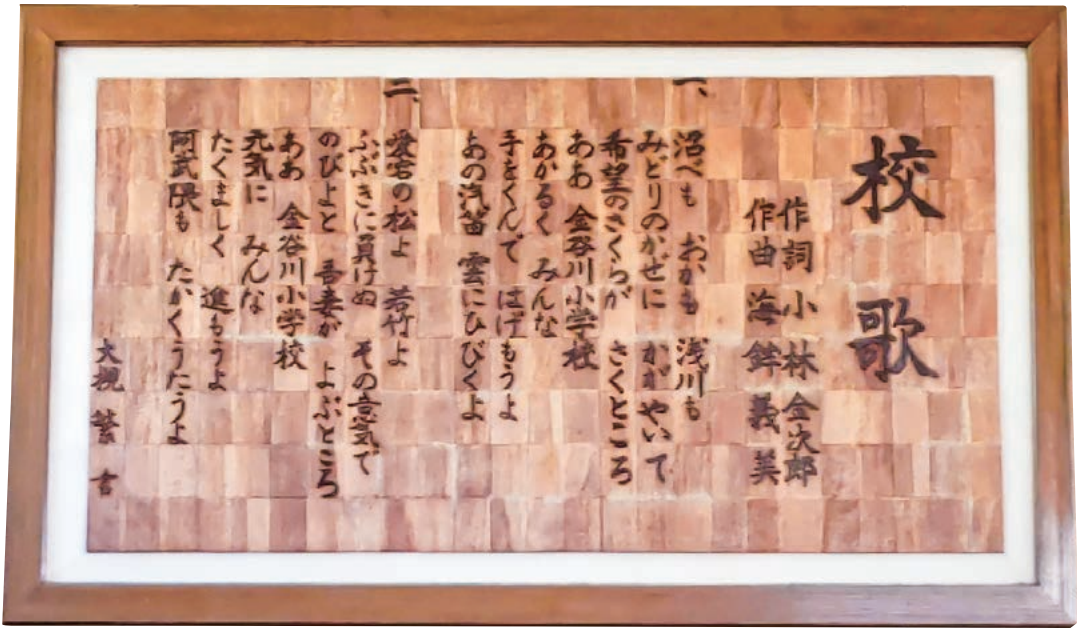 校歌
作詞 小林金次郎
作曲 海鉾義美
一、
沼べも おかも 浅川も
みどりのかぜに かがやいて
希望のさくらが さくところ
ああ 金谷川小学校
あかるく みんな
手をくんで はげもうよ
あの汽笛 雲にひびくよ
二、
愛宕の松よ 若竹よ
ふぶきに負けぬ その意気で
のびよと 吾妻が よぶところ
ああ 金谷川小学校
元気に みんな
たくましく 進もうよ
阿武隈も たかくうたうよ
大槻 繁 書